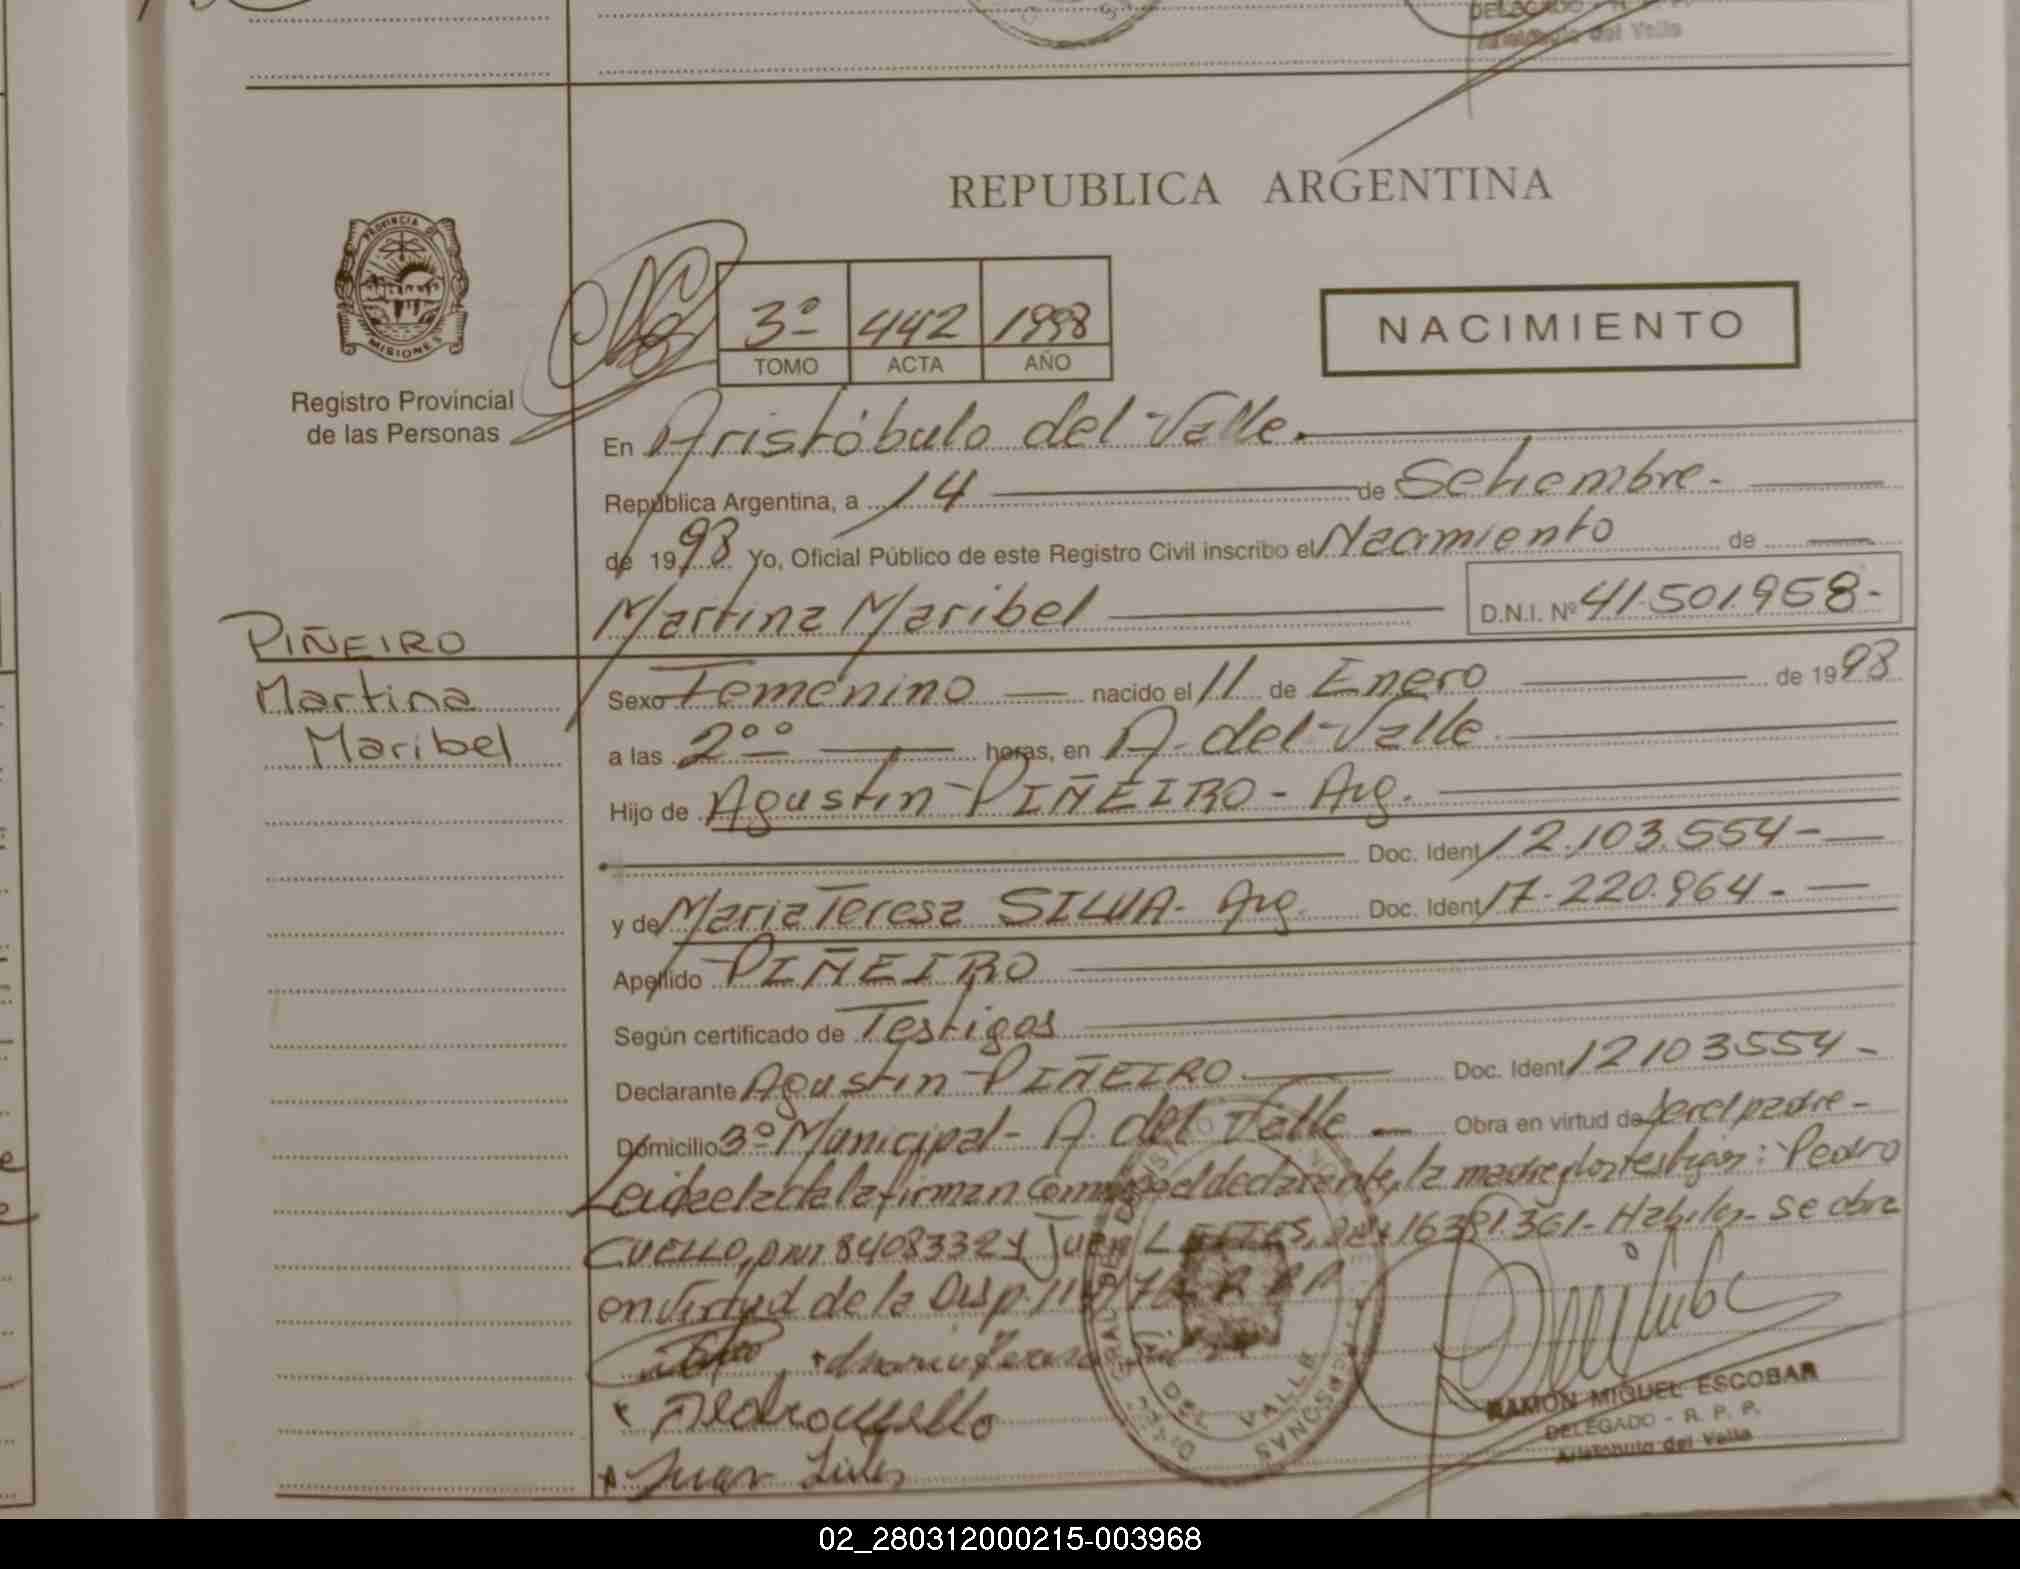 DELEGADO - R. P. P.
Aristóbulo del Valle
REPUBLICA ARGENTINA
PROVINCIA DE
MISIONES
Registro Provincial
de las Personas
3º 442 1998
TOMO ACTA AÑO
NACIMIENTO
En Aristóbulo del Valle.
República Argentina, a 14 de Setiembre.
de 1998 Yo, Oficial Público de este Registro Civil inscribo el Nacimiento de
Martina Maribel D.N.I. Nº 41.501.958-
PIÑEIRO
Martina
Maribel
Sexo Femenino nacido el 11 de Enero de 1998
a las 2ºº horas, en A. del Valle
Hijo de Agustín PIÑEIRO - Arg.
Doc. Ident 12.103.554-
y de Maria Teresa SILVA- Arg. Doc. Ident 17.220.964-
Apellido PIÑEIRO
Según certificado de Testigos
Declarante Agustín PIÑEIRO Doc. Ident 12103554-
Domicilio 3º Municipal- A. del Valle Obra en virtud de ser el padre-
Leida el acta la firman conmigo el declarante, la madre y los testigos: Pedro
CUELLO, DNI 8408332 y Juan 16381.361- Habiles- se obra
en virtud de la Disp.
Pedro cuello
Juan
DEL VALLE
RAMON MIGUEL ESCOBAR
DELEGADO - R. P. P.
Aristobulo del Valle
02_280312000215-003968